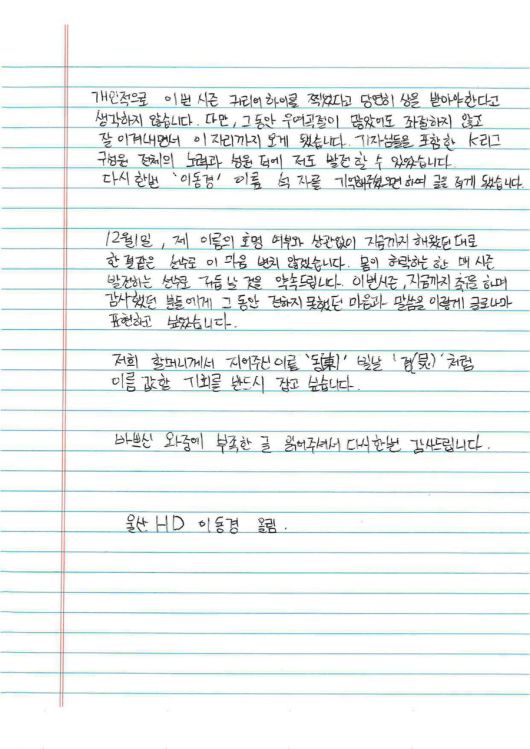 개인적으로 이번 시즌 커리어하이를 찍었다고 당연히 상을 받아야한다고
생각하지 않습니다. 다만, 그동안 우여곡절이 많았어도 좌절하지 않고
잘 이겨내면서 이 자리까지 오게 됐습니다. 기자님들을 포함한 K리그
구성원 전체의 노력과 성원 덕에 저도 발전할 수 있었습니다.
다시 한번 '이동경' 이름 석 자를 기억해주셨으면 하여 글을 적게 됐습니다.
12월1일, 제 이름의 호명 여부와 상관없이 지금까지 해왔던대로
한결같은 선수로 이 마음 변치 않겠습니다. 몸이 허락하는 한 매 시즌
발전하는 선수로 거듭날 것을 약속드립니다. 이번시즌, 지금까지 축구를 하며
감사했던 분들에게 그동안 전하지 못했던 마음과 말씀을 이렇게 글로나마
표현하고 싶었습니다.
저희 할머니께서 지어주신 이름 '동(東)' 빛날 '경(炅)' 처럼
이름 값할 기회를 반드시 잡고 싶습니다.
바쁘신 와중에 부족한 글 읽어주셔서 다시한번 감사드립니다.
울산 HD 이동경 올림.